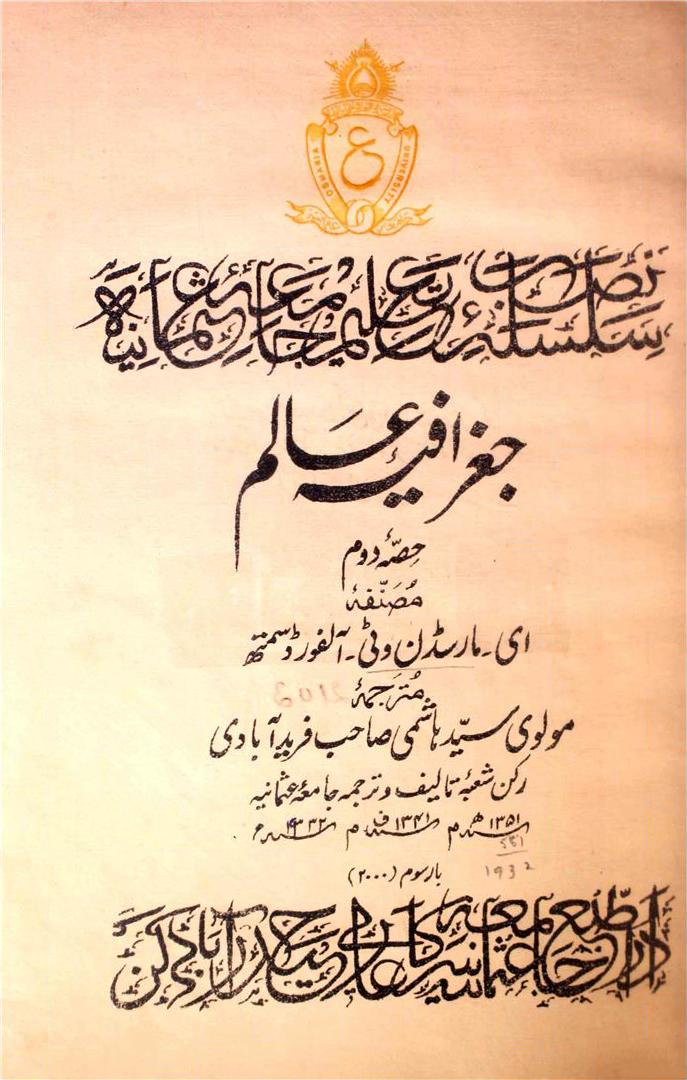 OSMANIA UNIVERSITY
ع
سلسلۂ نصاب تعلیم جامعۂ عثمانیہ
جغرافیہ عالم
حصّۂ دوم
مُصنّفۂ
ای۔ مارسڈن و ٹی۔ آلفورڈ سمتھ
مُترجمۂ
2103
مولوی سیّد ہاشمی صاحب فرید آبادی
رکن شعبۂ تالیف و ترجمہ جامعۂ عثمانیہ
۱۳۵۱ھ م ۱۳۴۱ف م ۱۹۳۲ء
1932
بار سوم (۲۰۰۰)
دارالطبع جامعہ عثمانیہ سرکار عالی حیدرآباد دکن